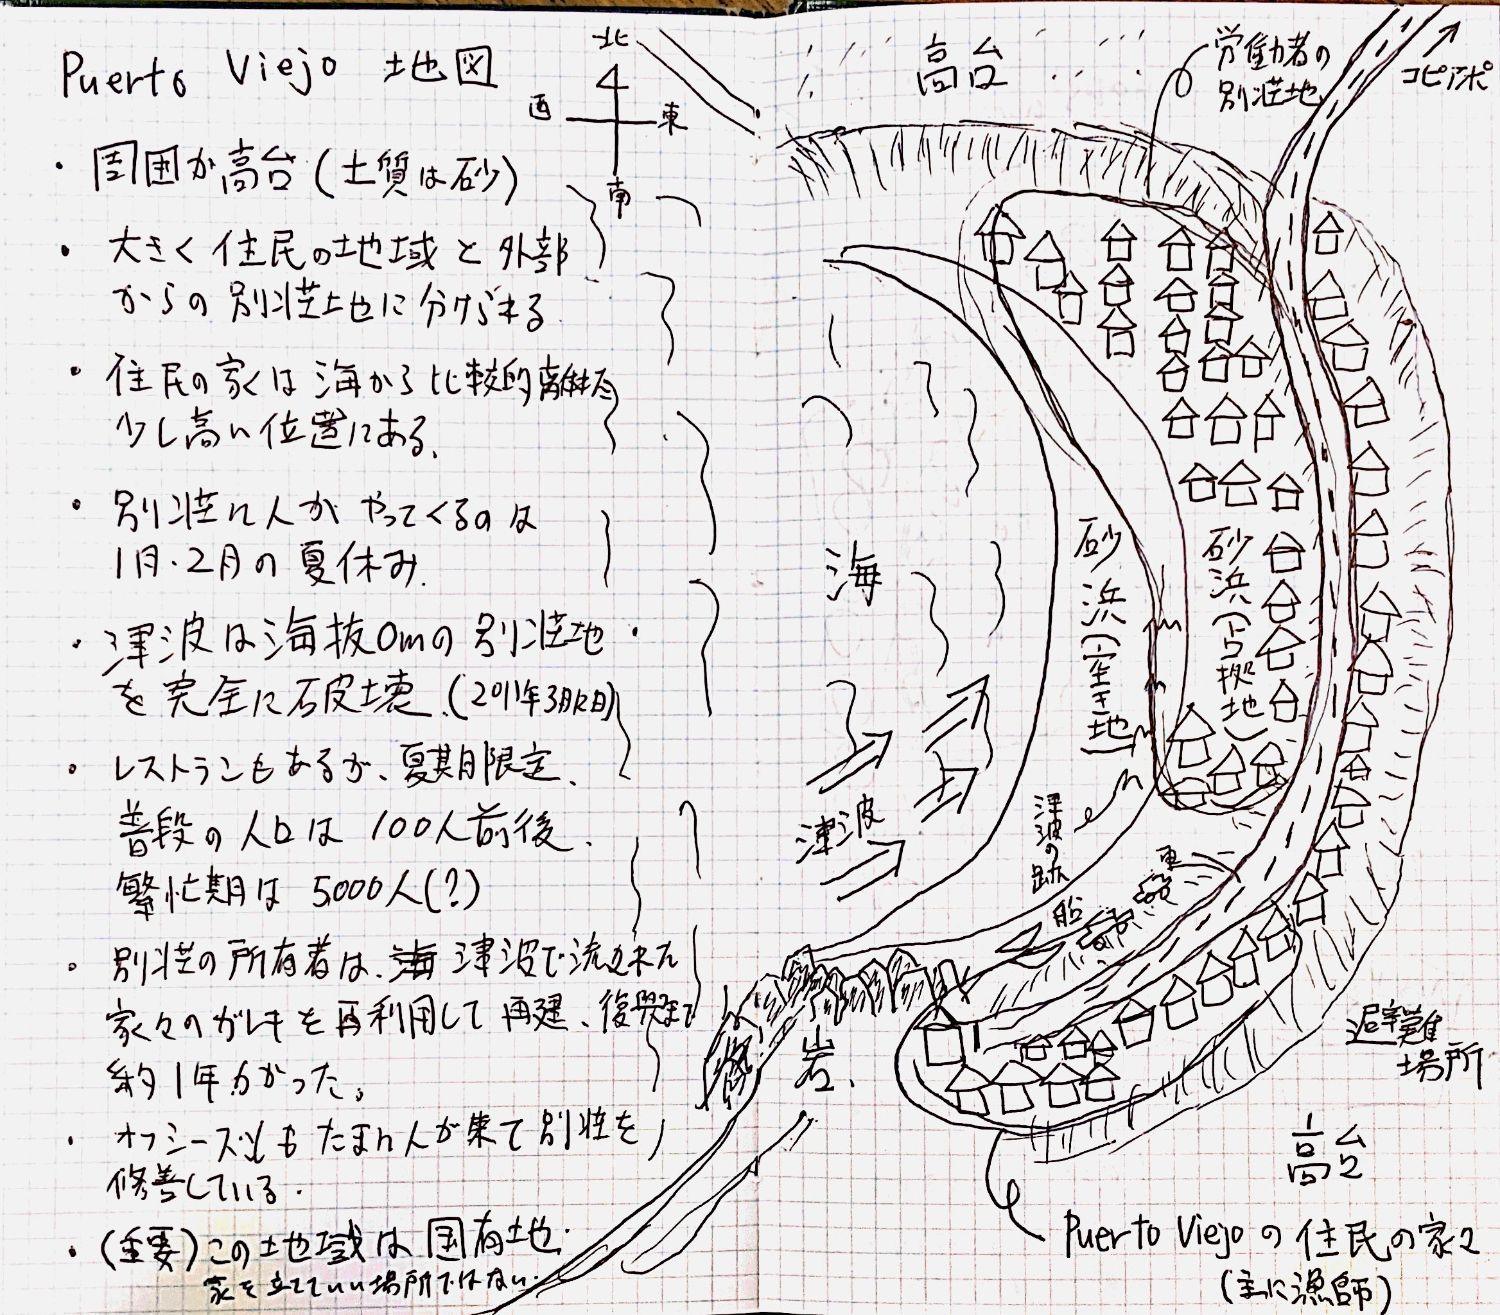 Puerto Viejo 地図
北
西
東
南
・周囲が高台(土質は砂)
・大きく住民の地域と外部
からの別荘地に分けられる
・住民の家々は海から比較的離れた
少し高い位置にある。
・別荘に人がやってくるのは
1月・2月の夏休み.
・津波は海抜0mの別荘地
を完全に破壊.(2011年3月12日)
・レストランもあるが、夏期限定、
普段の人口は100人前後、
繁忙期は5000人(?)
・別荘の所有者は、津波で流された
家々のガレキを再利用して再建、復興まで
約1年かかった。
・オフシーズンもたまに人が来て別荘を
修善している.
・(重要)この地域は国有地.
家を立てていい場所ではない.
高台
労働者の
別荘地
コピアポ
海
砂浜(空き地)
砂浜(占拠地)
津波
津波の跡
船
岩.
避難
場所
高台
Puerto Viejoの住民の家々
(主に漁師)